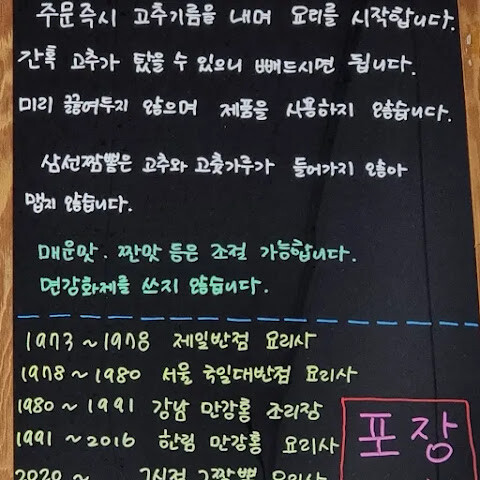 주문즉시 고추기름을 내며 요리를 시작합니다.
간혹 고추가 탔을 수 있으니 빼드시면 됩니다.
미리 끓여두지 않으며 제품을 사용하지 않습니다.
삼선짬뽕은 고추와 고춧가루가 들어가지 않아
맵지 않습니다.
매운맛. 짠맛 등은 조절 가능합니다.
면강화제를 쓰지 않습니다.
1973 ~ 1978 제일반점 요리사
1978 ~ 1980 서울 국일대반점 요리사
1980 ~ 1991 강남 만강홍 조리장
1991 ~ 2016 한림 만강홍 요리사
2020 ~ 그짬뽕 요리사
포장